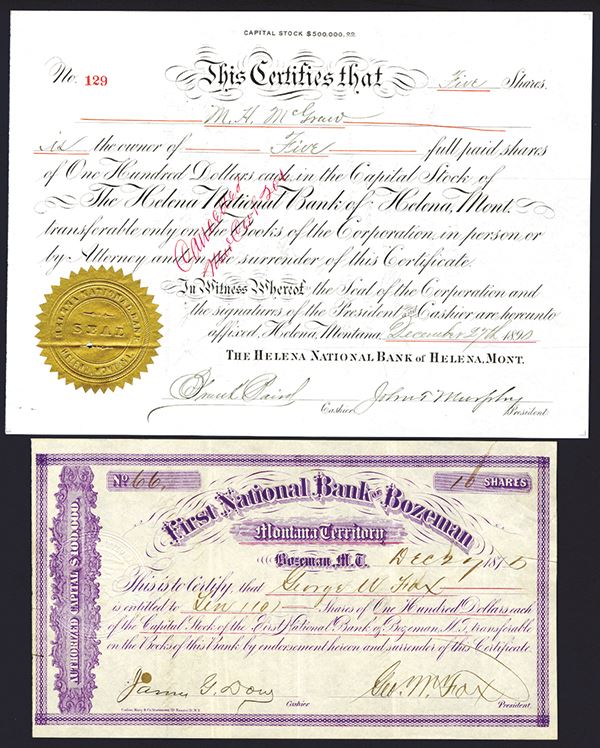 CAPITAL STOCK $500.000.00
No. 129 This Certifies that Five Shares.
M. H. McGraw
is the owner of Five full paid shares
of One Hundred Dollars each in the Capital Stock of
The Helena National Bank of Helena, Mont.
transferable only on the Books of the Corporation, in person or
by Attorney and on the surrender of this Certificate.
Cancelled
In Witness Whereof the Seal of the Corporation and
the signatures of the President and Cashier are hereunto
affixed, Helena, Montana, December 27th 1890
THE HELENA NATIONAL BANK OF HELENA, MONT.
HELENA NATIONAL BANK
SEAL
HELENA MONTANA
Frank Baird Cashier John T Murphy President.
No 66. 10 SHARES
First National Bank of Bozeman
Montana Territory
Bozeman, M.T. Dec 27 187
AUTHORIZED CAPITAL $100,000.
This is to Certify, that George W Fox
is entitled to Ten (10) Shares of One Hundred Dollars each
of the Capital Stock of the First National Bank of Bozeman, M.T., transferable
on the Books of this Bank by endorsement hereon and surrender of this Certificate.
James G. Dow Cashier Geo. W. Fox President.